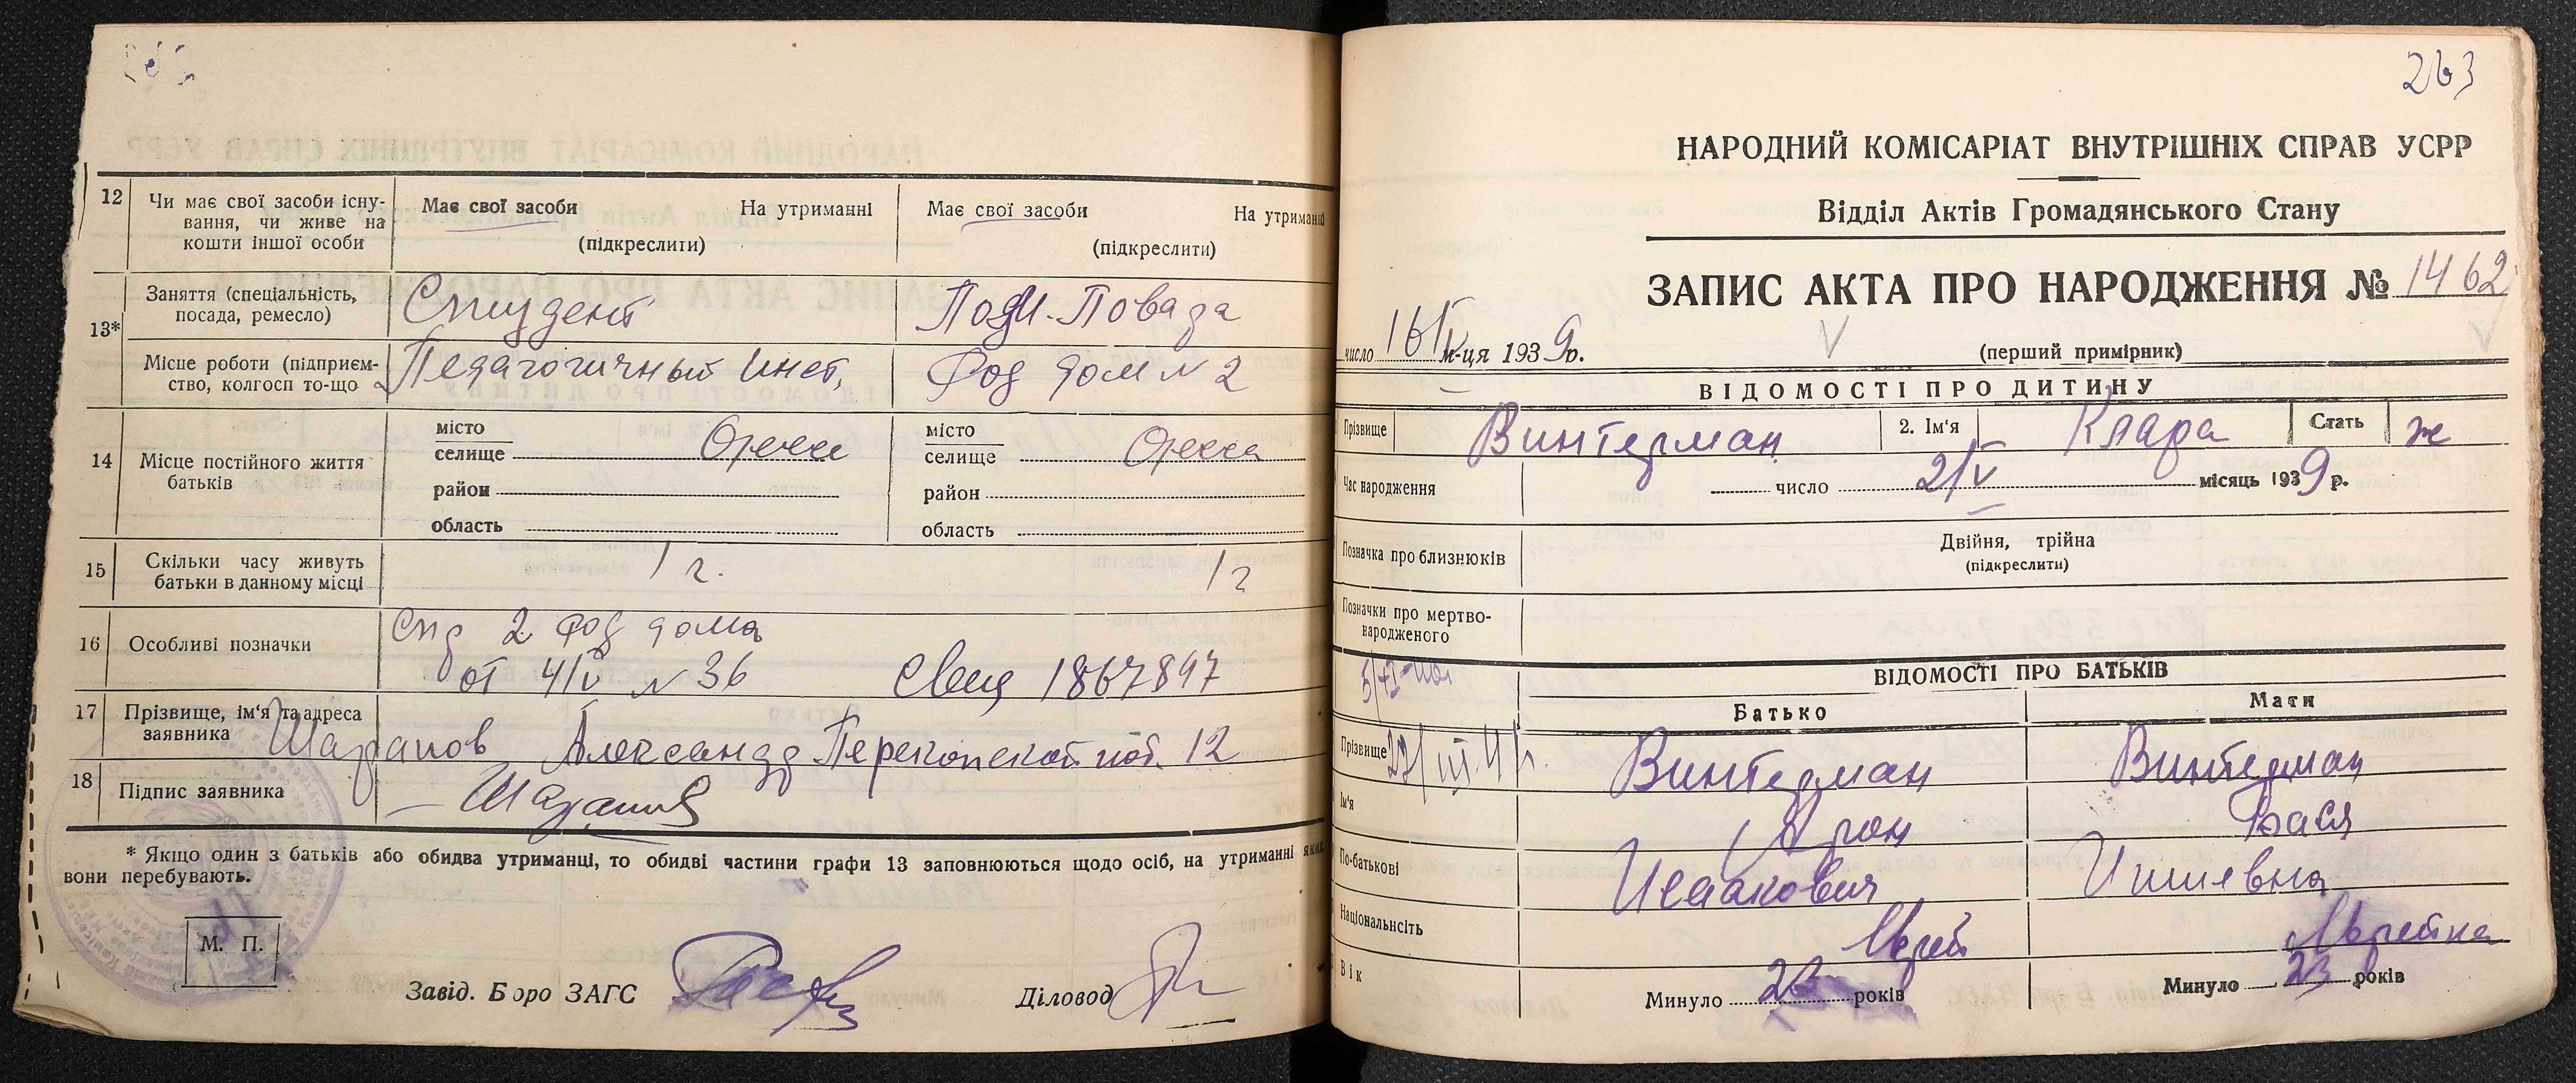 12 Чи має свої засоби існу-
вання, чи живе на
кошти іншої особи
Має свої засоби На утриманні
(підкреслити)
Має свої засоби На утриманні
(підкреслити)
13* Заняття (спеціальність,
посада, ремесло)
Студент
Повара
Місце роботи (підприєм-
ство, колгосп то-що
Педагогичный Инст.
Род дом № 2
14 Місце постійного життя
батьків
місто
селище Одесса
район
область
місто
селище Одесса
район
область
15 Скільки часу живуть
батьки в данному місці
1 г.
1 г
16 Особливі позначки
Спр 2 род дома
от 4/V № 36 Свид 1867897
17 Прізвище, ім'я та адреса
заявника
Александр 12
18 Підпис заявника
* Якщо один з батьків або обидва утриманці, то обидві частини графи 13 заповнюються щодо осіб, на утриманні яких
вони перебувають.
М. П.
Завід. Бюро ЗАГС
Діловод
263
НАРОДНИЙ КОМІСАРІАТ ВНУТРІШНІХ СПРАВ УСРР
Відділ Актів Громадянського Стану
ЗАПИС АКТА ПРО НАРОДЖЕННЯ № 1462
число 16/V м-ця 1939 р.
(перший примірник)
ВІДОМОСТІ ПРО ДИТИНУ
Прізвище Винтерман 2. Ім'я Клара Стать ж
Час народження число 2/V місяць 1939 р.
Позначка про близнюків
Двійня, трійна
(підкреслити)
Позначки про мертво-
народженого
ВІДОМОСТІ ПРО БАТЬКІВ
Батько Мати
Прізвище Винтерман Винтерман
Ім'я Арон Бася
По-батькові Исаакович
Національність Еврей Еврейка
Вік Минуло 23 років Минуло 23 років